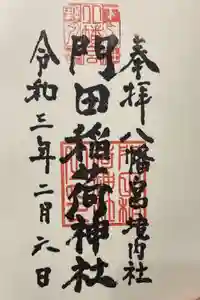 奉拝 八幡宮境内社
門田稲荷神社
令和三年二月六日